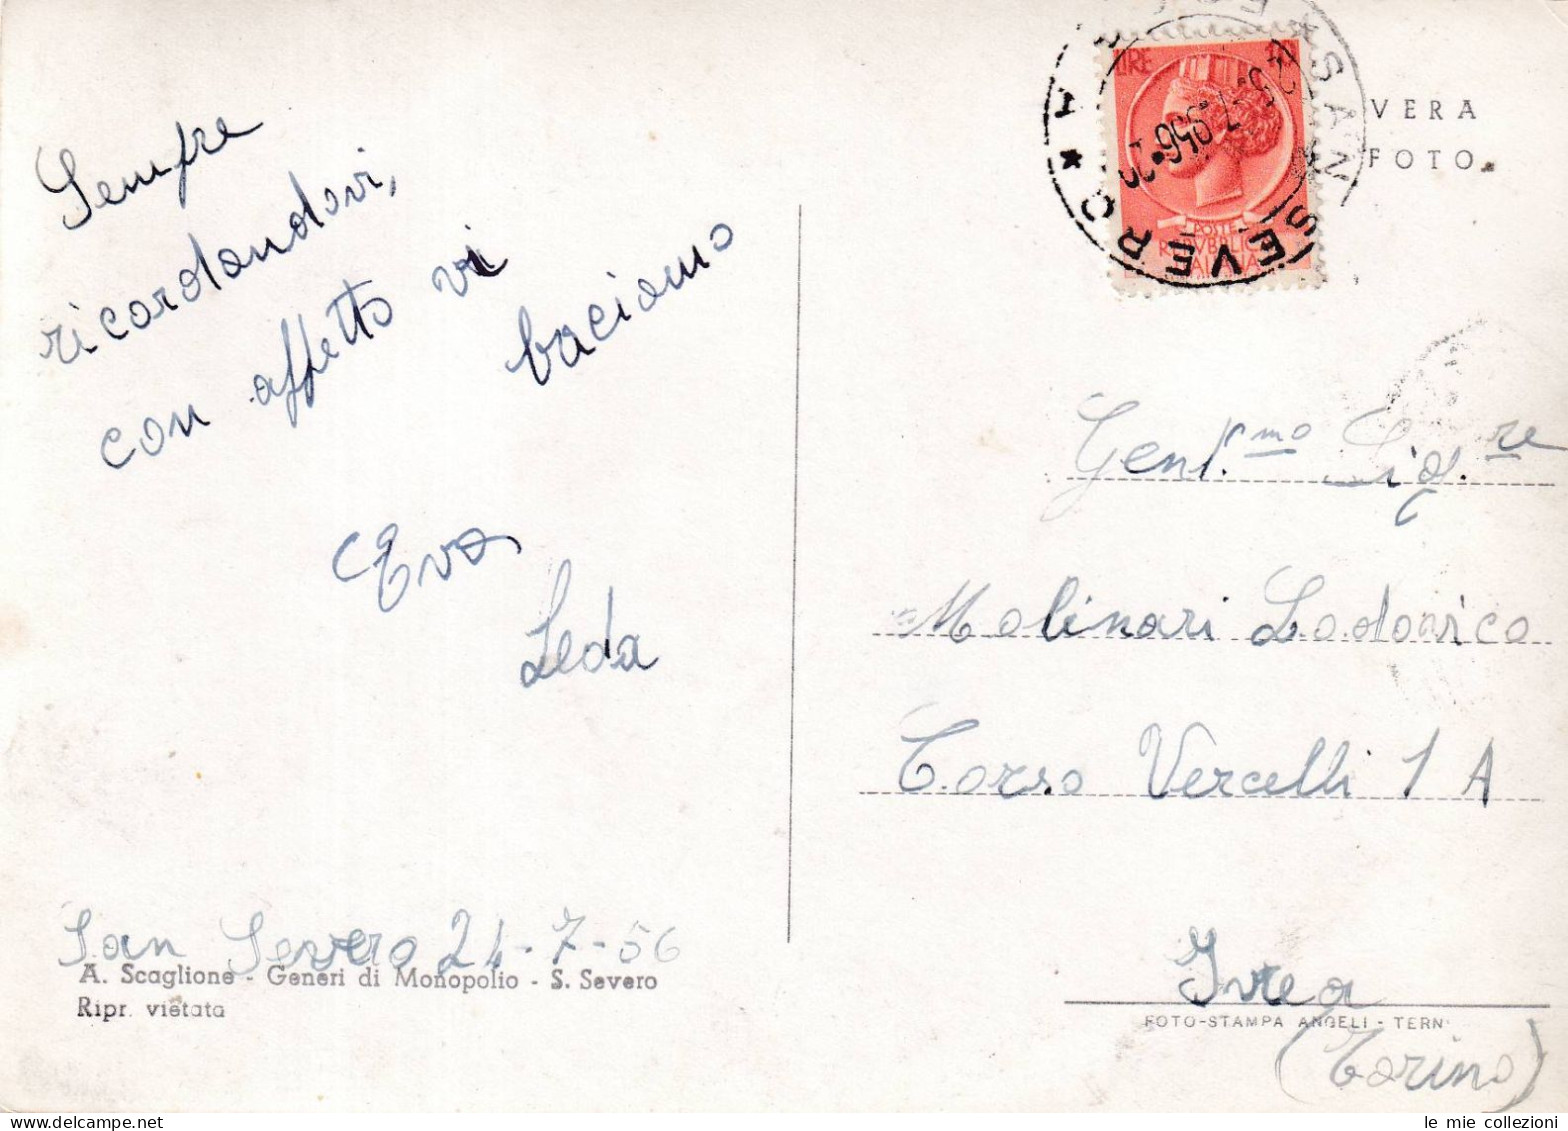 Sempre
ricordandovi,
con affetto vi
baciamo
Eva
Leda
San Severo 24-7-56
A. Scaglione - Generi di Monopolio - S. Severo
Ripr. vietata
LIRE
POSTE
REPVBBLICA
ITALIANA
SAN SEVERO
* A
25-7.956
VERA
FOTO
Gent.mo Sig.re
Molinari Lodovico
Corso Vercelli 1 A
Ivrea
FOTO-STAMPA ANGELI - TERNI
(Torino)
le mie collezioni